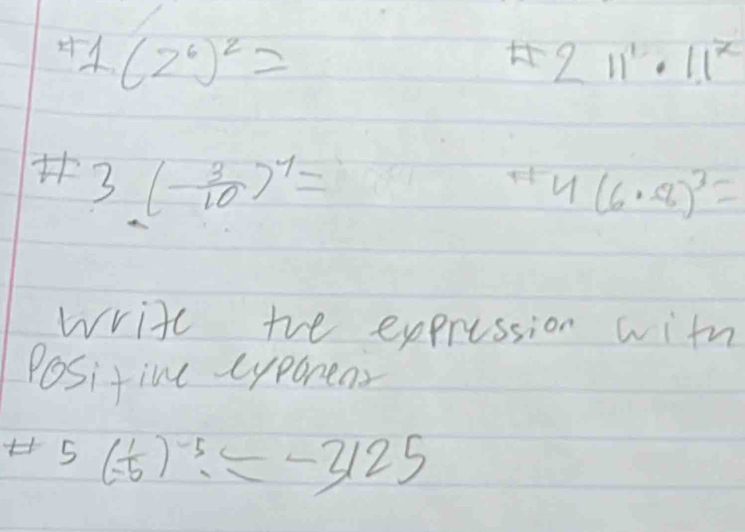 #1. (2⁶)² =
#2 11¹ · 11²
#3 (-3/10)⁴ =
#4 (6·8)³ =
Write the expression with
Positive exponent
#5 (-1/5)⁻⁵ = -3125